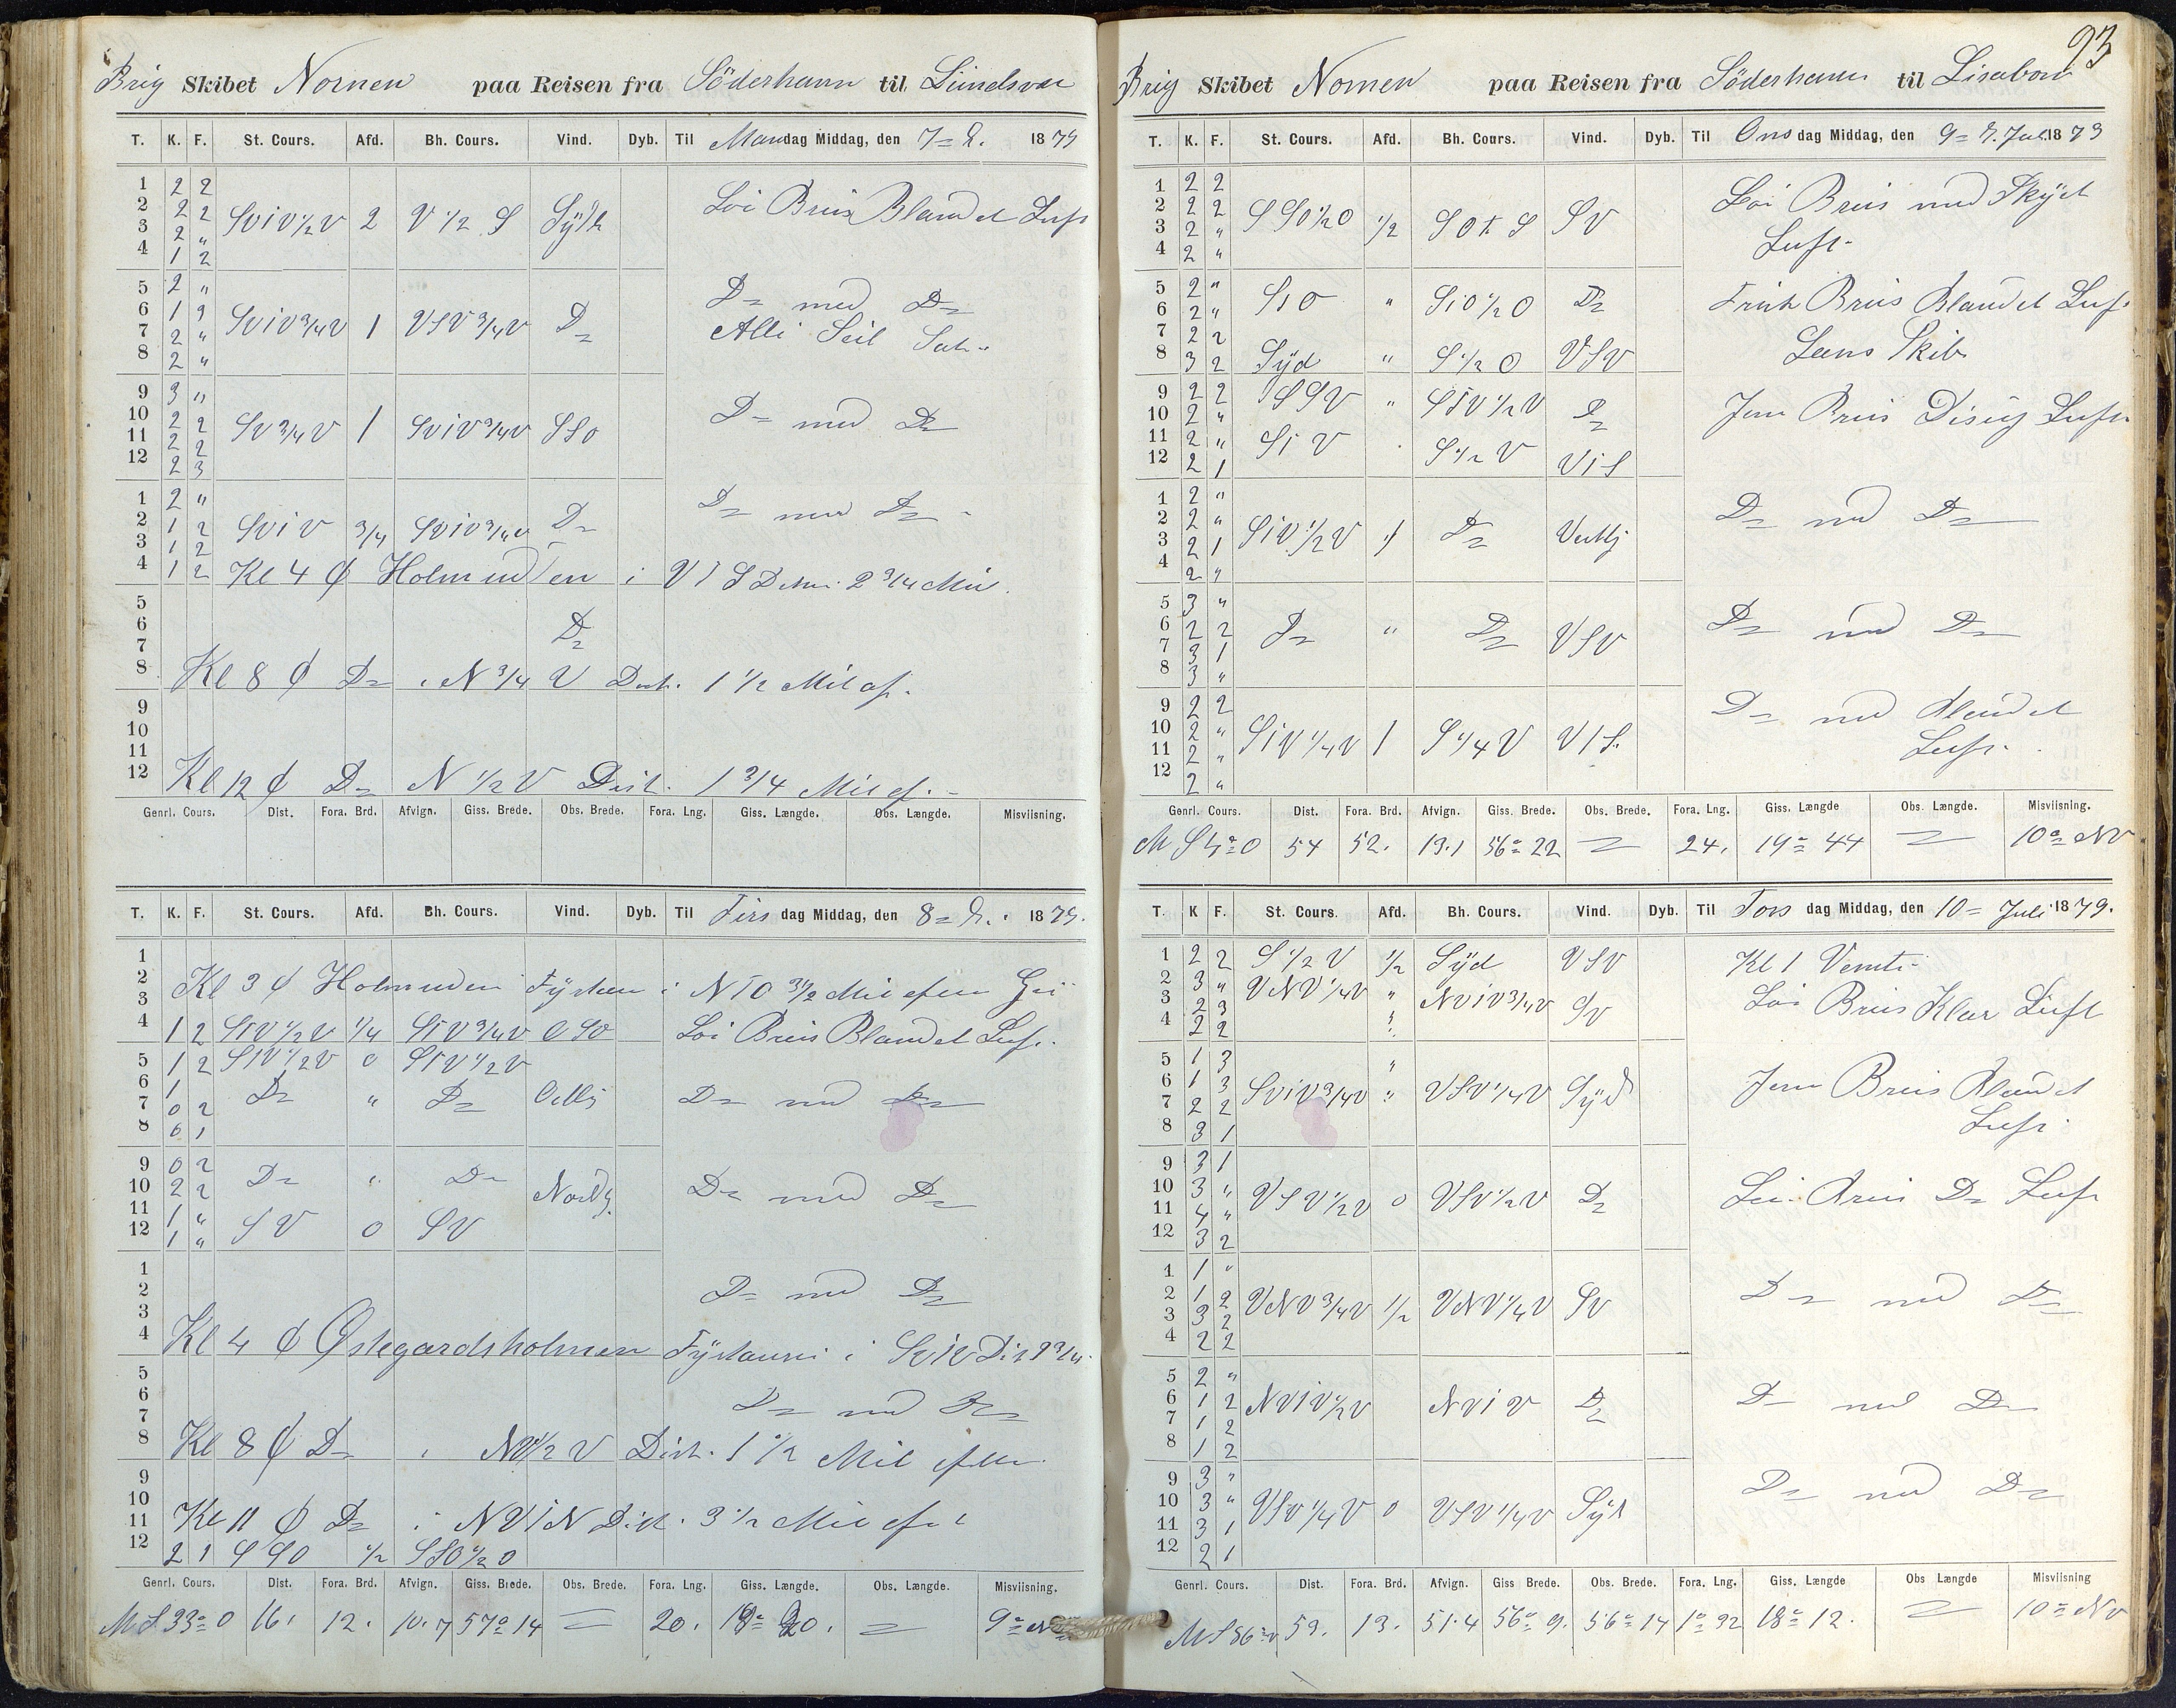 Brig Skibet Nornen paa Reisen fra Söderhamn til
T. K. F. St. Cours. Afd. Bh. Cours. Vind. Dyb. Til Mandag Middag, den 7 1879
1 2 2
2 2 2 SViV½V 2 V½S Syd Löi Bris Blandet Luft
3 2 "
4 1 2
5 2 "
6 1 2 SViV¾V 1 VSV¾V Do Do med Do
7 2 " Alle Seil
8 2 "
9 3 "
10 2 2 SV¾V 1 SViV¾V SSO Do med Do
11 2 2
12 2 3
1 2 "
2 1 2 SViV ¾ SViV¾V Do Do med Do
3 1 2
4 1 2 Kl 4 i VTS 2¾ Mil
5
6 Do
7
8 Kl 8 Do i N¾V Dist. 1½ Mil af.
9
10
11
12 Kl 12 Do N½V Dist. 1¾ Mil
Genrl. Cours. Dist. Fora. Brd. Afvign. Giss. Brede. Obs. Brede. Fora. Lng. Giss. Længde. Obs. Længde. Misviisning.
T. K. F. St. Cours. Afd. Bh. Cours. Vind. Dyb. Til Tirsdag Middag, den 8 1879.
1
2 Kl 3 Holmuden i NTO 3½ Mil
3
4 1 2 STV½V ¼ STV¾V OSO Löi Bris Blandet Luft.
5 1 2 STV½V 0 STV½V
6 1 Do " Do Do med Do
7 0 2
8 0 1
9 0 2
10 2 2 Do " Do Nordlig Do med Do
11 1 "
12 1 " SV 0 SV
1
2 Do med Do
3
4 Kl 4 Østegardsholmen i
5
6 Do med Do
7
8 Kl 8 Do i Dist. 1½ Mil
9
10
11 Kl 11 Do i NVTN Dist. 3½ Mil
12 2 1 SSO ½ SSO½O
Genrl. Cours. Dist. Fora. Brd. Afvign. Giss. Brede. Obs. Brede. Fora. Lng. Giss. Længde. Obs. Længde. Misviisning.
M S33°O 16. 12. 10.7 57° 14 = 20. = 9° NV
93
Brig Skibet Nornen paa Reisen fra Söderhamn til Lisabon
T. K. F. St. Cours. Afd. Bh. Cours. Vind. Dyb. Til Onsdag Middag, den 9 Juli 1879
1 2 2
2 2 2 SSO½O ½ SOTS SV Löi Bris med Skyet
3 2 " Luft.
4 2 "
5 2 "
6 2 " SiO " SiO½O Do Frisk Bris Blandet Luft
7 2 2
8 3 2 Syd " S½O VSV Læns Skib
9 2 2 SSV " STV½V Do
10 2 " Jevn Bris Disig Luft
11 2 "
12 2 1 SiV S½V ViS
1 2 "
2 2 " SiV½V Do Vestlig Do med Do
3 2 1
4 2 "
5 3 "
6 2 2 Do " Do VSV Do med Do
7 3 1
8 3 "
9 2 2
10 2 " SiV¼V 1 S¼V ViS Do med Blandet
11 2 " Luft.
12 2 "
Genrl. Cours. Dist. Fora. Brd. Afvign. Giss. Brede. Obs. Brede. Fora. Lng. Giss. Længde Obs. Længde. Misviisning.
54 52. 13.1 56° 22 = 24. 19° 44 = 10° NV
T. K F. St. Cours. Afd. Bh. Cours. Vind. Dyb. Til Torsdag Middag, den 10 Juli 1879.
1 2 2 S½V ½ Syd VSV Kl 1 Vendte
2 3 " VNV¼V " NViV¾V SV Löi Bris Klar Luft
3 2 3
4 2 2
5 1 3
6 1 3 SViV¾V " VSV¼V Syd Jevn Bris Blandet
7 2 2 Luft.
8 3 1
9 3 1
10 3 " VSV½V 0 VSV½V Do Löi Bris Do Luft
11 4 "
12 3 2
1 1 "
2 1 2 VNV¾V ½ VNV¼V SV Do med Do
3 3 2
4 2 2
5 2 "
6 1 2 NViV½V NViV Do Do med Do
7 1 2
8 1 2
9 3 "
10 3 " VSV¼V 0 VSV¼V Syd Do med Do
11 3 1
12 2 1
Genrl. Cours. Dist. Fora. Brd. Afvign. Giss Brede. Obs. Brede. Fora. Lng. Giss. Længde Obs Længde Misviisning
53. 13. 51.4 56° 9. 56° 14 1° 32 18° 12. = 10° NV